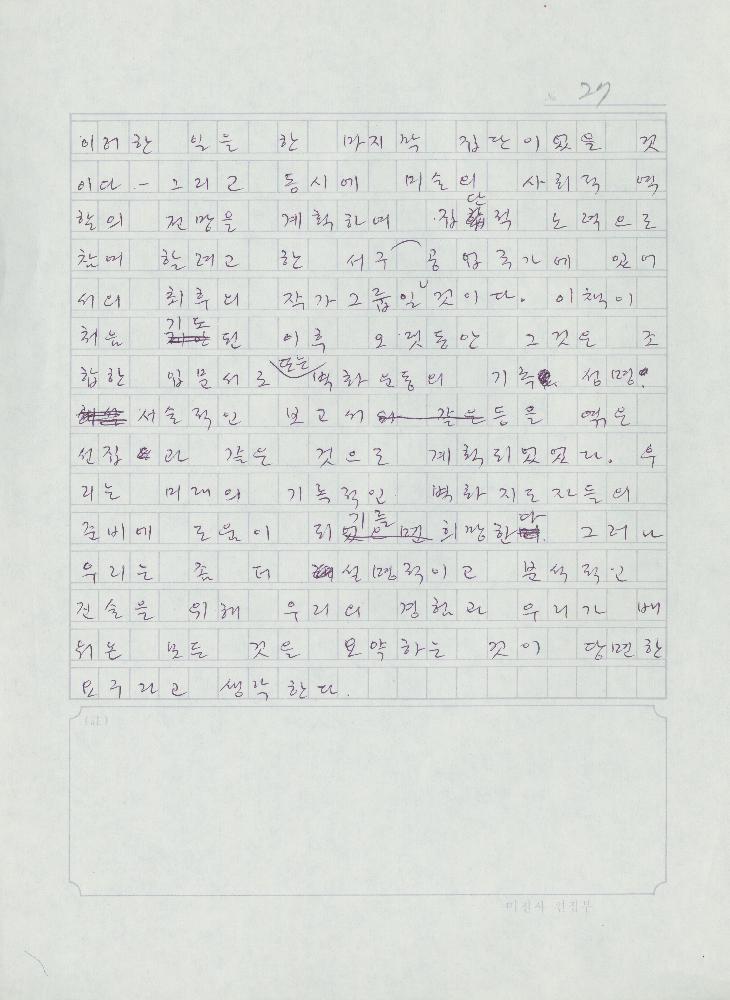 27
이러한 일을 한 마지막 집단이었을 것
이다 - 그리고 동시에 미술의 사회적 역
할의 전망을 계획하며 집단적 노력으로
참여 할려고 한 서구 공업국가에 있어
서의 최후의 작가그룹일 것이다. 이책이
처음 기도된 이후 오랫동안 그것은 조
합한 입문서로 또는 벽화운동의 기록, 성명,
서술적인 보고서 등을 엮은
선집과 같은 것으로 계획되었었다. 우
리는 미래의 기록적인 벽화지도자들의
준비에 도움이 되기를 희망한다. 그러나
우리는 좀 더 설명적이고 분석적인
진술을 위해 우리의 경험과 우리가 배
워온 모든 것을 요약하는 것이 당면한
요구라고 생각한다.
미진사 편집부